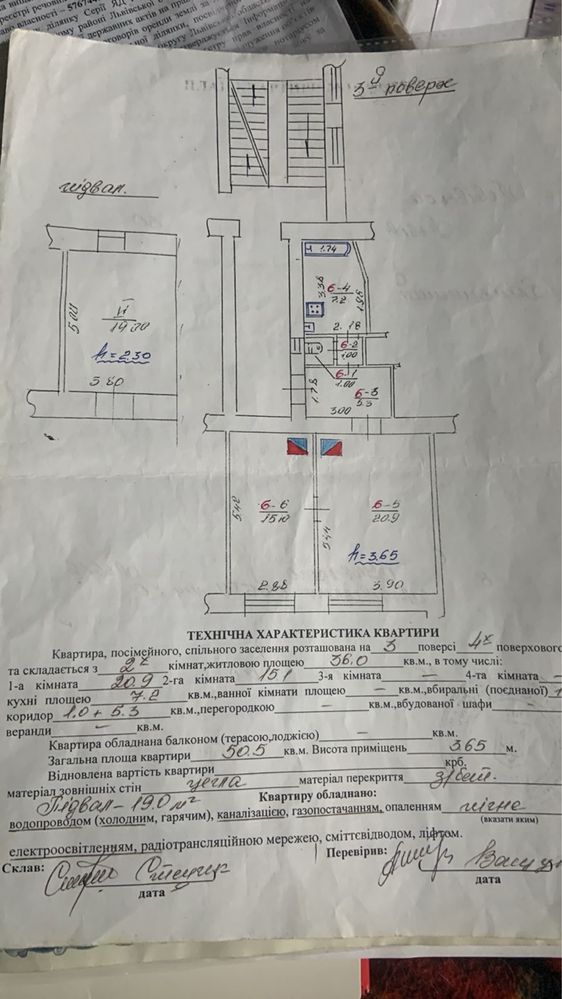 3й поверх
підвал.
1.74
6-4
7.2
3.38
1.96
2.18
II
19.00
5.00
h=2.30
3.80
6-2
1.00
6-1
1.00
6-3
5.3
1.78
3.00
6-6
15.10
5.42
6-5
20.9
5.44
h=3.65
2.88
3.90
ТЕХНІЧНА ХАРАКТЕРИСТИКА КВАРТИРИ
Квартира, посімейного, спільного заселення розташована на 3 поверсі 4х поверхового
та складається з 2х кімнат,житловою площею 36.0 кв.м., в тому числі:
1-а кімната 20.9 2-га кімната 15.1 3-я кімната – 4-та кімната –
кухні площею 7.2 кв.м.,ванної кімнати площею – кв.м.,вбиральні (поєднаної)
коридор 1.0 + 5.3 кв.м.,перегородкою – кв.м.,вбудованої шафи –
веранди – кв.м.
Квартира обладнана балконом (терасою,лоджією) – кв.м.
Загальна площа квартири 50.5 кв.м. Висота приміщень 3.65 м.
Відновлена вартість квартири крб.
матеріал зовнішніх стін цегла матеріал перекриття з/бет.
Підвал – 19.0 м²
Квартиру обладнано:
водопроводом (холодним, гарячим), каналізацією, газопостачанням, опаленням пічне
(вказати яким)
електроосвітленням, радіотрансляційною мережею, сміттєвідводом, ліфтом.
Склав: Перевірив:
дата дата